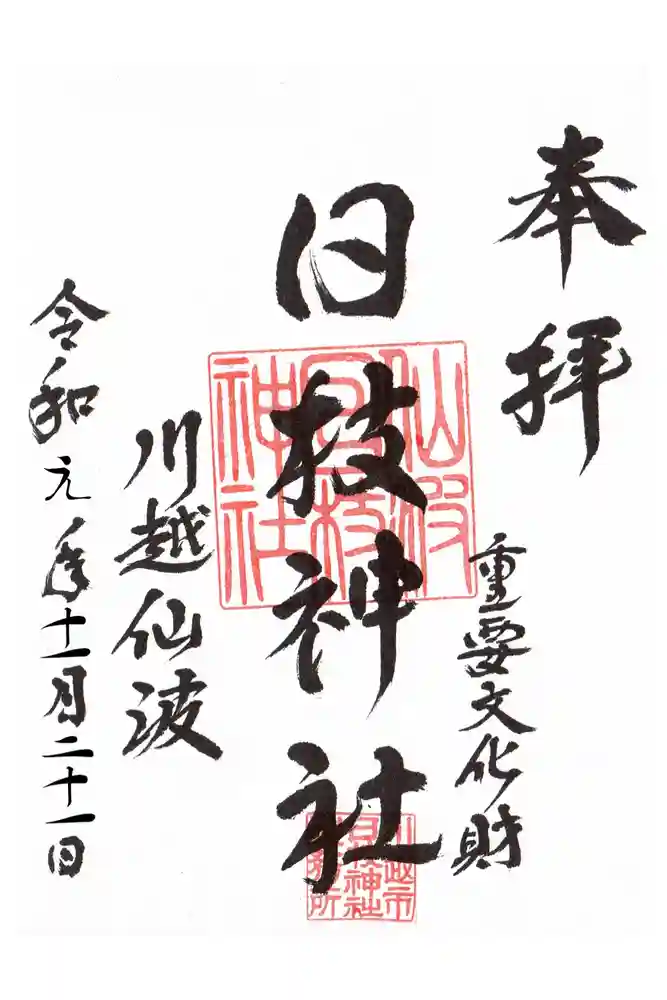 奉拝
重要文化財
日枝神社
仙波
日枝
神社
川越市
日枝神社
社務所
川越仙波
令和元年十一月二十一日